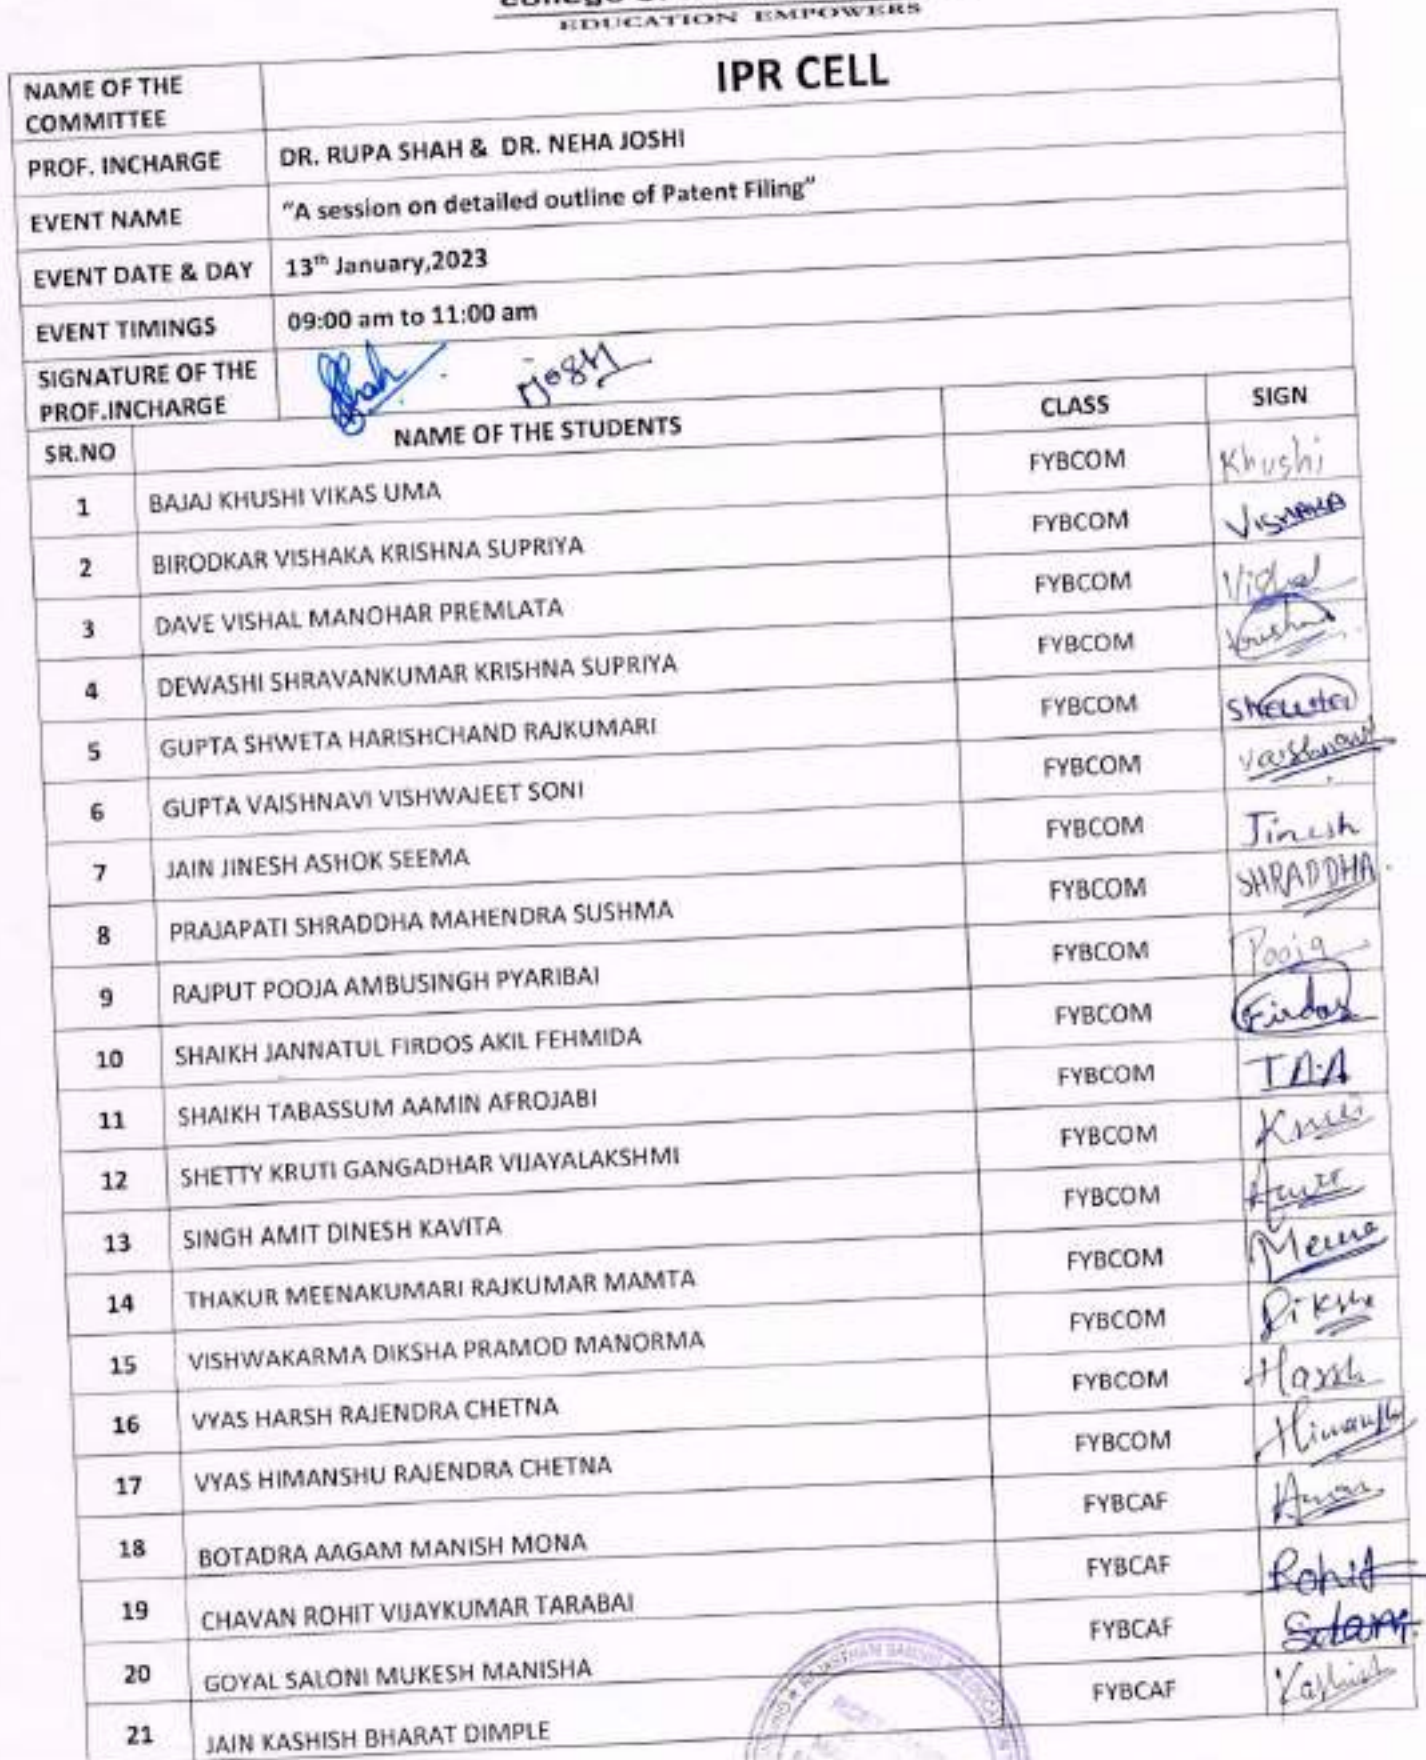 EDUCATION EMPOWERS
NAME OF THE COMMITTEE IPR CELL
PROF. INCHARGE DR. RUPA SHAH & DR. NEHA JOSHI
EVENT NAME "A session on detailed outline of Patent Filing"
EVENT DATE & DAY 13th January,2023
EVENT TIMINGS 09:00 am to 11:00 am
SIGNATURE OF THE PROF.INCHARGE Shah Njoshi
SR.NO NAME OF THE STUDENTS CLASS SIGN
1 BAJAJ KHUSHI VIKAS UMA FYBCOM Khushi
2 BIRODKAR VISHAKA KRISHNA SUPRIYA FYBCOM VISHAKA
3 DAVE VISHAL MANOHAR PREMLATA FYBCOM Vishal
4 DEWASHI SHRAVANKUMAR KRISHNA SUPRIYA FYBCOM
5 GUPTA SHWETA HARISHCHAND RAJKUMARI FYBCOM Shweta
6 GUPTA VAISHNAVI VISHWAJEET SONI FYBCOM Vaishnavi
7 JAIN JINESH ASHOK SEEMA FYBCOM Jinesh
8 PRAJAPATI SHRADDHA MAHENDRA SUSHMA FYBCOM SHRADDHA
9 RAJPUT POOJA AMBUSINGH PYARIBAI FYBCOM Pooja
10 SHAIKH JANNATUL FIRDOS AKIL FEHMIDA FYBCOM Firdos
11 SHAIKH TABASSUM AAMIN AFROJABI FYBCOM T.A.A
12 SHETTY KRUTI GANGADHAR VIJAYALAKSHMI FYBCOM Kruti
13 SINGH AMIT DINESH KAVITA FYBCOM
14 THAKUR MEENAKUMARI RAJKUMAR MAMTA FYBCOM Meena
15 VISHWAKARMA DIKSHA PRAMOD MANORMA FYBCOM Diksha
16 VYAS HARSH RAJENDRA CHETNA FYBCOM Harsh
17 VYAS HIMANSHU RAJENDRA CHETNA FYBCOM Himanshu
18 BOTADRA AAGAM MANISH MONA FYBCAF
19 CHAVAN ROHIT VIJAYKUMAR TARABAI FYBCAF Rohit
20 GOYAL SALONI MUKESH MANISHA FYBCAF
21 JAIN KASHISH BHARAT DIMPLE FYBCAF Kashish